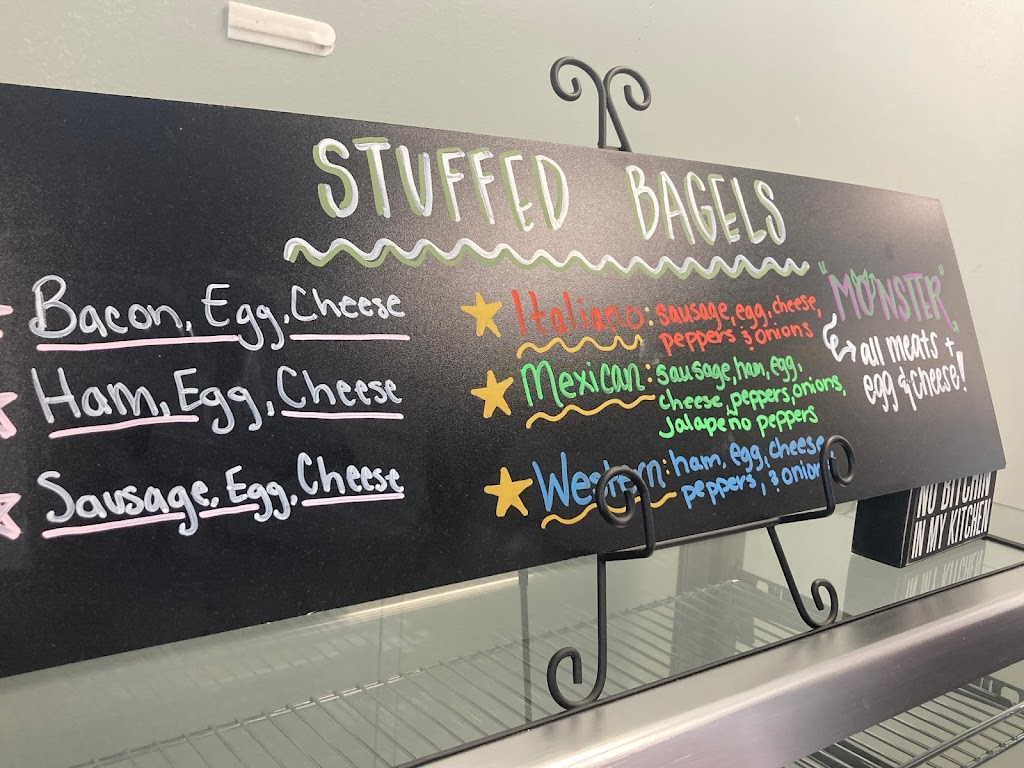 STUFFED BAGELS
Bacon, Egg, Cheese
Ham, Egg, Cheese
Sausage, Egg, Cheese
Italiano: sausage, egg, cheese,
peppers & onions
Mexican: sausage, ham, egg,
cheese, peppers, onions,
Jalapeño peppers
Western: ham, egg, cheese,
peppers, & onions
"MONSTER"
all meats +
egg & cheese!
NO BITCHIN
IN MY KITCHEN